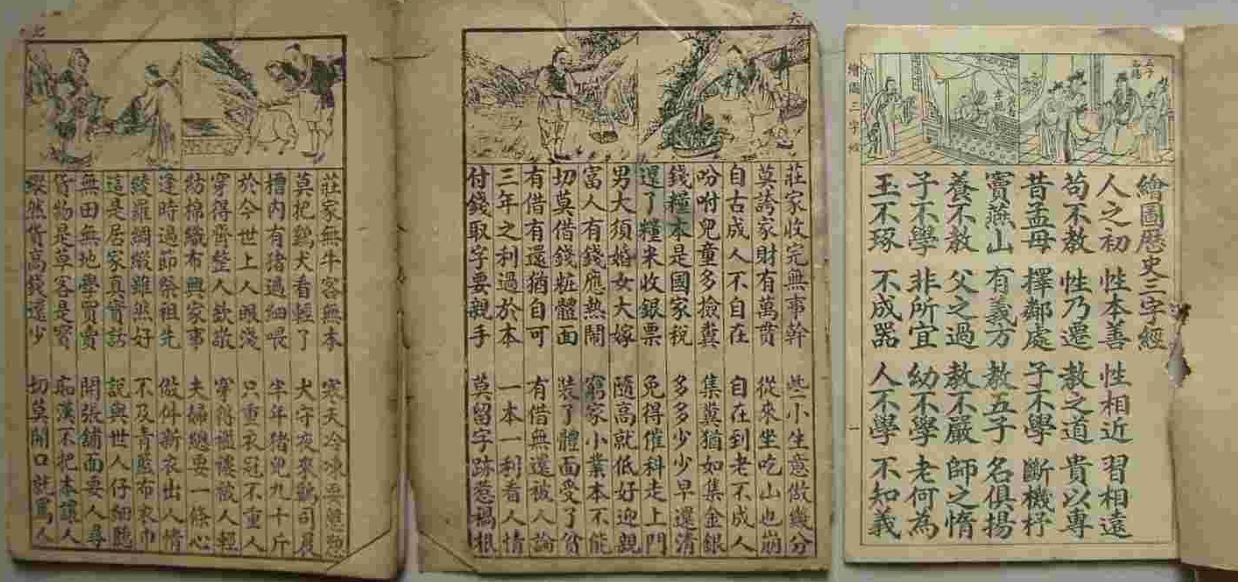 繪圖歷史三字經
人之初 性本善 性相近 習相遠
苟不教 性乃遷 教之道 貴以專
昔孟母 擇鄰處 子不學 斷機杼
竇燕山 有義方 教五子 名俱揚
養不教 父之過 教不嚴 師之惰
子不學 非所宜 幼不學 老何為
玉不琢 不成器 人不學 不知義
繪圖三字經
一
六
莊家收完無事幹 些小生意做幾分
莫誇家財有萬貫 從來坐吃山也崩
自古成人不自在 自在到老不成人
吩咐兒童多撿糞 集糞猶如集金銀
錢糧本是國家稅 多多少少早還清
還了糧米收銀票 免得催科走上門
男大須婚女大嫁 隨高就低好迎親
富人有錢應熱鬧 窮家小業本不能
切莫借錢粧體面 裝了體面受了貧
有借有還猶自可 有借無還被人論
三年之利過於本 一本一利看人情
付錢取字要親手 莫留字跡惹禍根
七
莊家無牛客無本 寒天冷凍要
莫把鷄犬看輕了 犬守夜來鷄司晨
槽內有猪過細喂 半年猪兒九十斤
於今世上人眼淺 只重衣冠不重人
穿得齊整人欽敬 穿得襤褸被人輕
紡棉織布興家事 夫婦總要一條心
逢時過節祭祖先 做件新衣出人情
綾羅綢緞雖然好 不及青藍布衣巾
這是居家真實話 說與世人仔細聽
無田無地學買賣 開張舖面要人尋
貨物是草客是寶 痴漢不把本讓人
縱然貨高錢還少 切莫開口就罵人